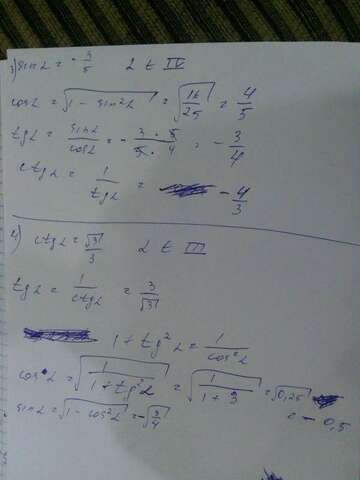 3) sin α = - 3/5   α ∈ IV
cos α = √(1 - sin²α) = √(16/25) = 4/5
tg α = sin α / cos α = - (3 · 5)/(5 · 4) = - 3/4
ctg α = 1/tg α = - 4/3
4) ctg α = √3/3   α ∈ III
tg α = 1/ctg α = 3/√3
1 + tg² α = 1/cos² α
cos α = √(1/(1 + tg² α)) = √(1/(1 + 3)) = √0,25
= - 0,5
sin α = √(1 - cos² α) = - √(3/4)